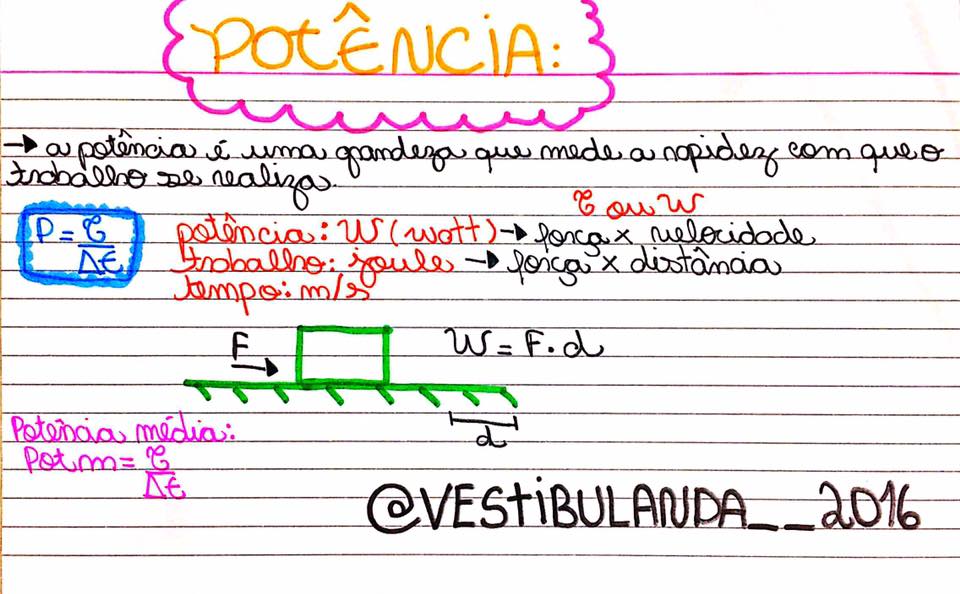 POTÊNCIA:
→ a potência é uma grandeza que mede a rapidez com que o
trabalho se realiza.
P = τ/Δt
τ ou W
potência: W (watt) → força x velocidade
trabalho: joule → força x distância
tempo: m/s
F
W = F · d
d
Potência média:
Pot m = τ/Δt
@VESTIBULANDA__2016